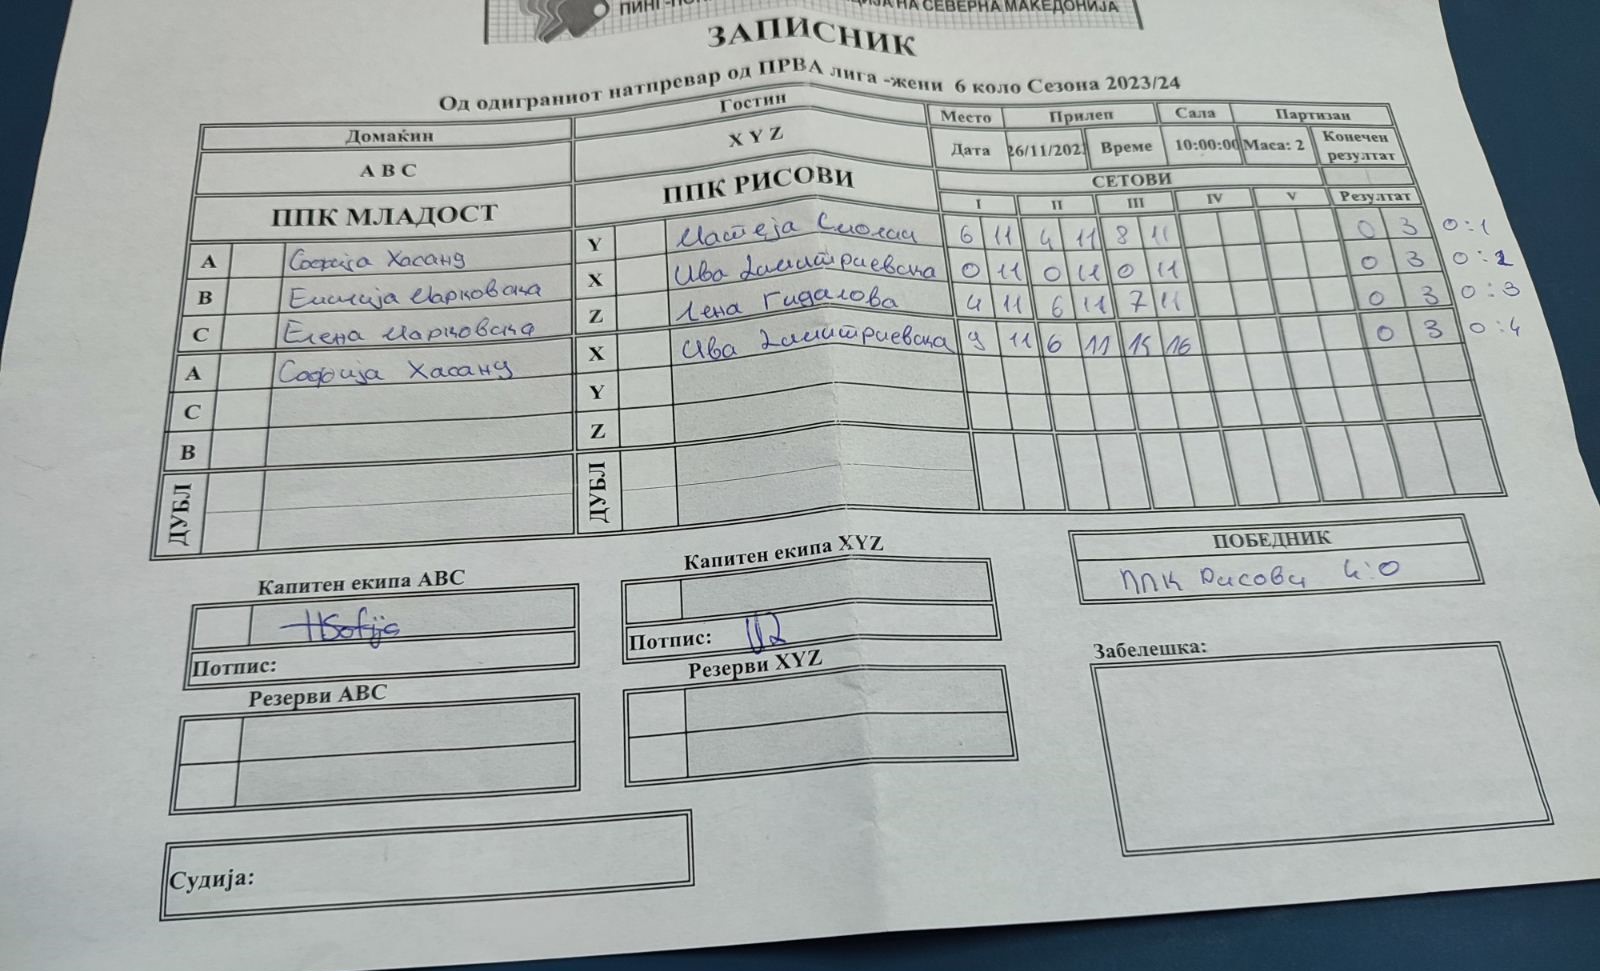 ПИНГ-ПОН НА СЕВЕРНА МАКЕДОНИЈА
ЗАПИСНИК
Од одиграниот натпревар од ПРВА лига -жени 6 коло Сезона 2023/24
Домаќин Гостин Место Прилеп Сала Партизан
A B C X Y Z Дата 26/11/202 Време 10:00:00 Маса: 2 Конечен резултат
ППК МЛАДОСТ ППК РИСОВИ СЕТОВИ
I II III IV V Резултат
A Софија Хасанд Y Матеја 6 11 4 11 8 11 0 3 0:1
B Емилија Марковска X Ива Димитриевска 0 11 0 11 0 11 0 3 0:2
C Елена Марковска Z Лена Гидалова 4 11 6 11 7 11 0 3 0:3
A Софија Хасанд X Ива Димитриевска 9 11 6 11 14 16 0 3 0:4
C Y
B Z
ДУБЛ ДУБЛ
ПОБЕДНИК
ППК Рисови 4:0
Капитен екипа ABC Капитен екипа XYZ
HSofija
Потпис: Потпис:
Резерви ABC Резерви XYZ
Забелешка:
Судија: